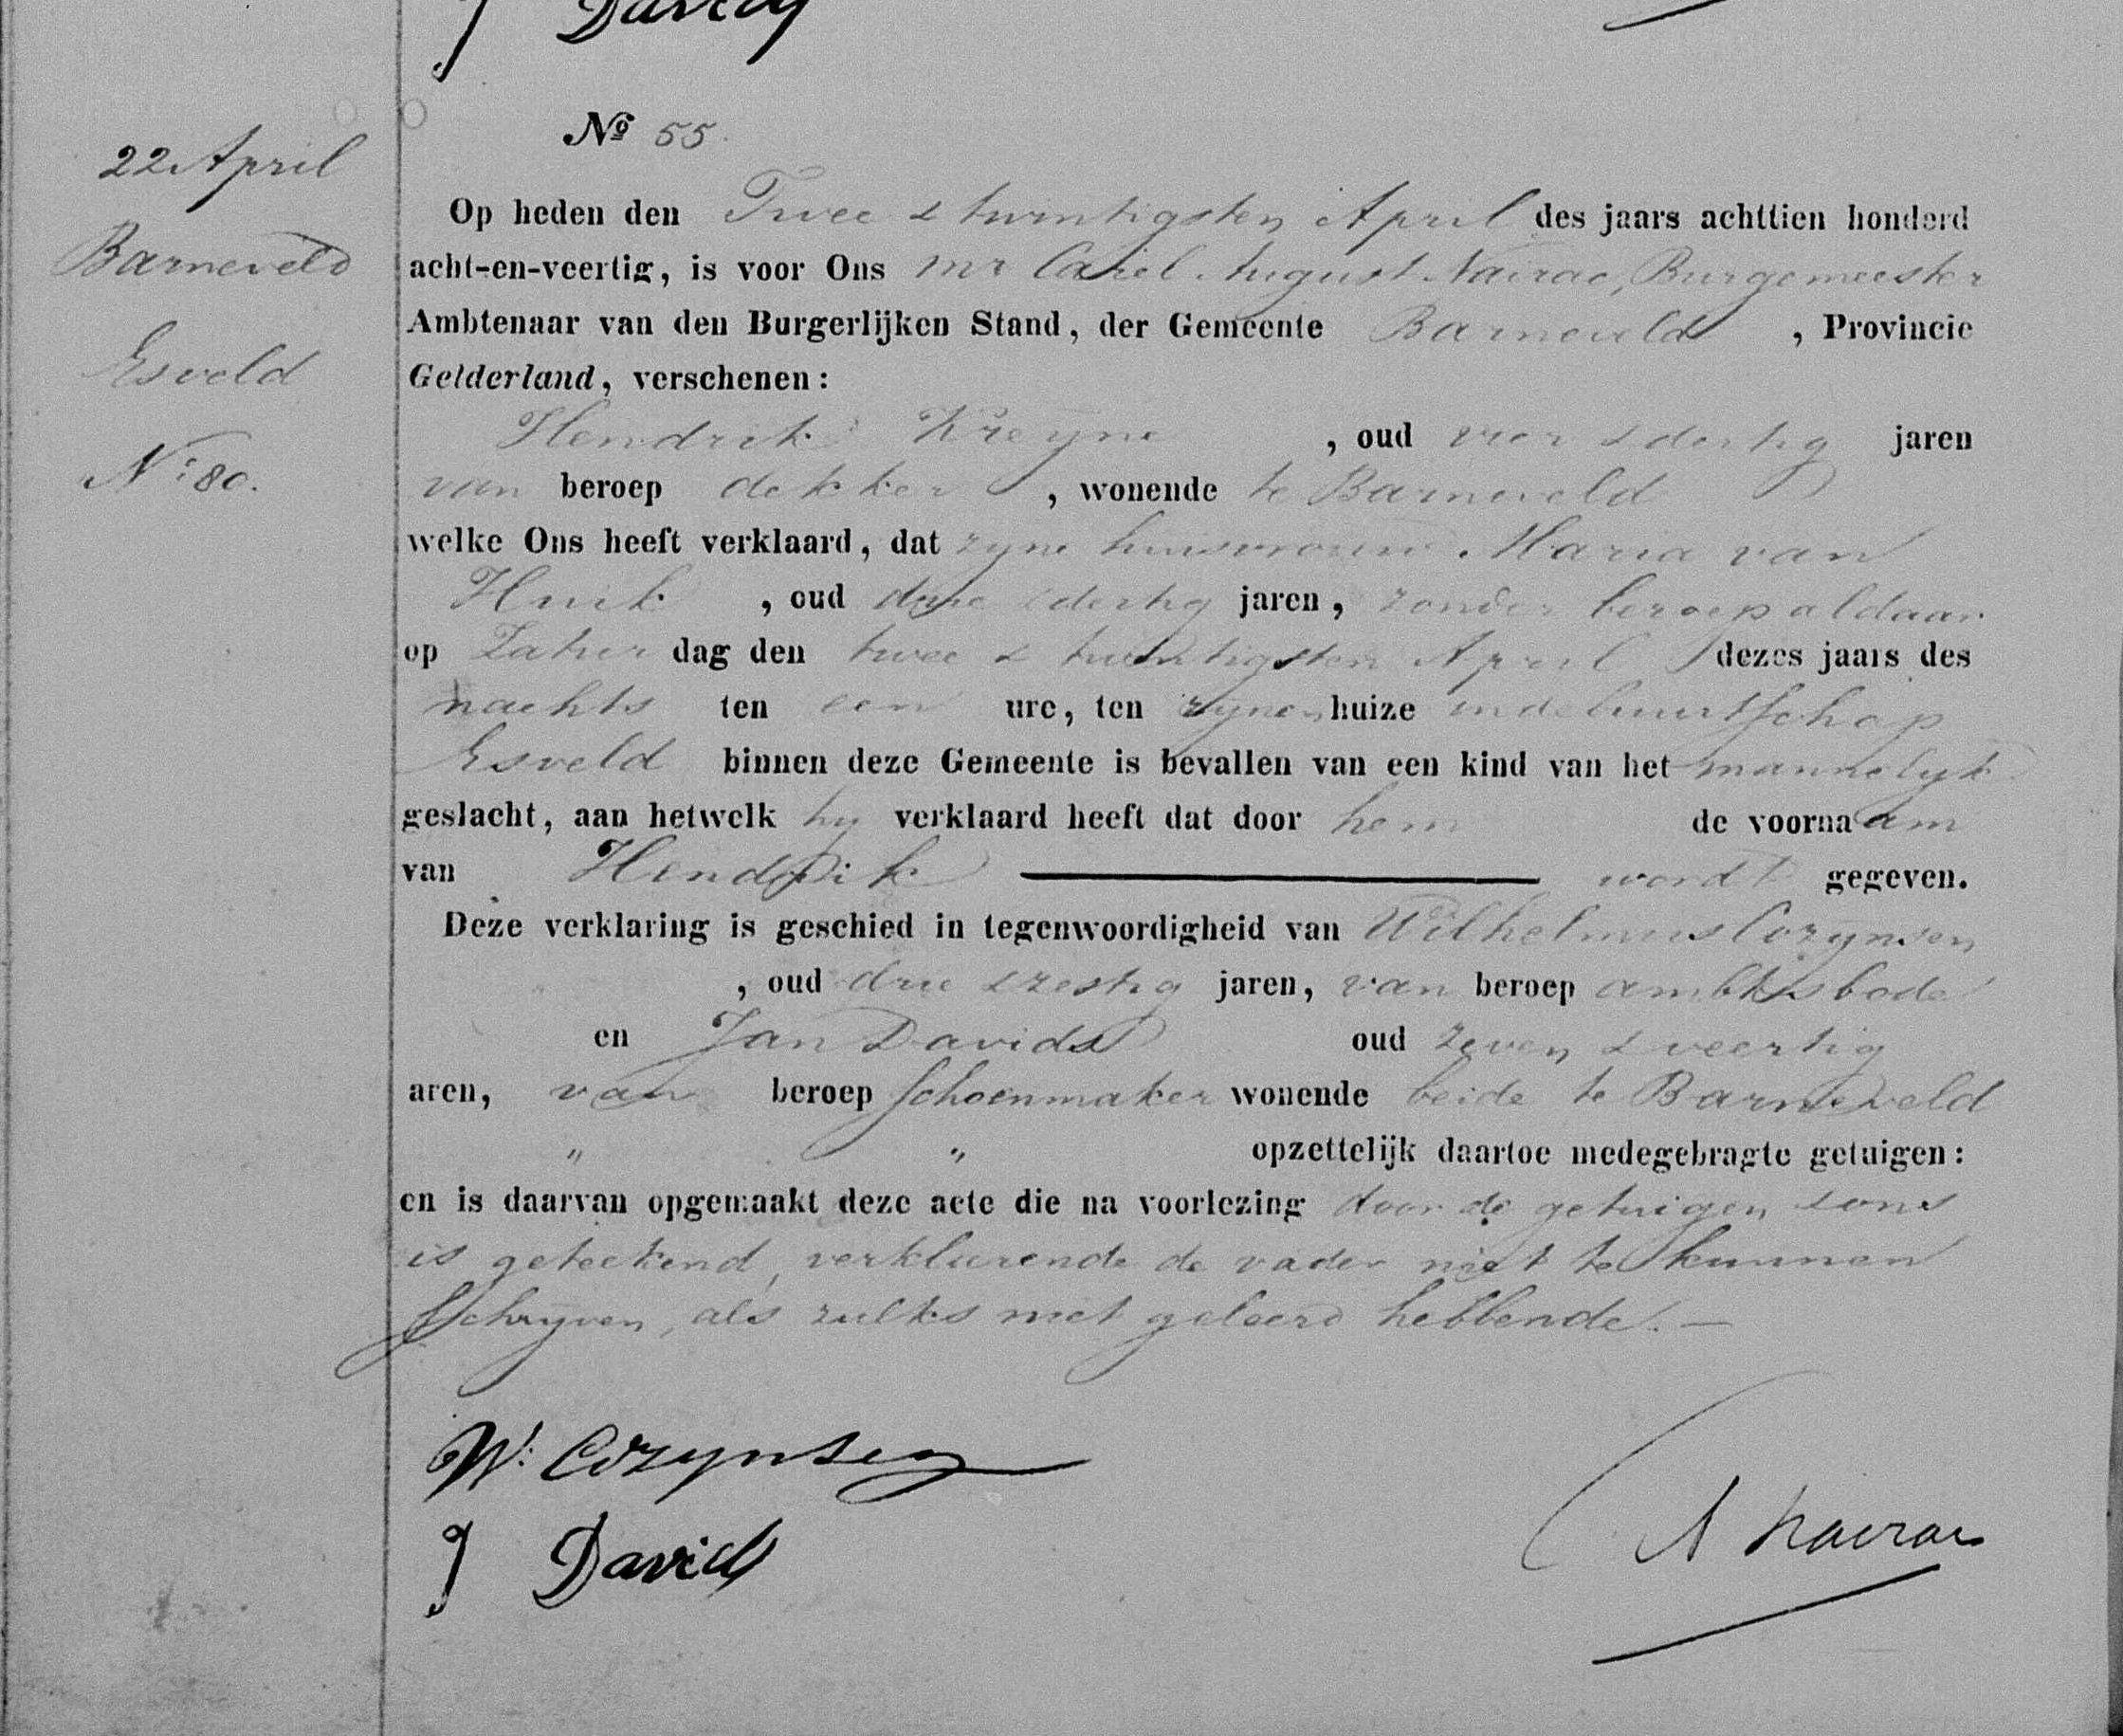 Davids
№ 55.
22 April
Barneveld
Esveld
No 80.
Op heden den Twee & twintigsten April des jaars achttien honderd
acht-en-veertig, is voor Ons Mr Carel August Nairac, Burgemeester
Ambtenaar van den Burgerlijken Stand, der Gemeente Barneveld , Provincie
Gelderland, verschenen:
Hendrik Kreyne , oud vier & dertig jaren
van beroep dekker , wonende te Barneveld
welke Ons heeft verklaard, dat zyne huisvrouw Maria van
Huik , oud drie & dertig jaren, zonder beroep aldaar
op Zatur dag den twee & twintigsten April dezes jaars des
nachts ten een ure, ten zynen huize in de buurtschap
Esveld binnen deze Gemeente is bevallen van een kind van het mannelyk
geslacht, aan hetwelk hy verklaard heeft dat door hem de voornaam
van Hendrik wordt gegeven.
Deze verklaring is geschied in tegenwoordigheid van Wilhelmus Cozynsen
, oud drie & zestig jaren, van beroep ambtsbode
en Jan Davids oud zeven & veertig
aren, van beroep schoenmaker wonende beide te Barneveld
" " opzettelijk daartoe medegebragte getuigen:
en is daarvan opgemaakt deze acte die na voorlezing door de getuigen & ons
is geteekend, verklarende de vader niet te kunnen
schryven, als zulks niet geleerd hebbende. —
W. Cozynsen
J Davids
CA Nairac